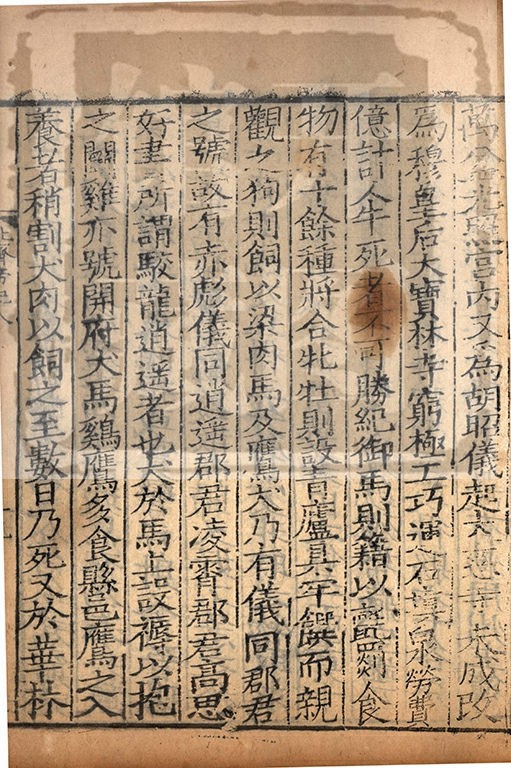 萬盆光照宫内又爲胡昭儀起大慈寺未成改
爲穆皇后大寶林寺窮極工巧運石填泉勞費
億計人牛死者不可勝紀御馬則籍以氊罽食
物有十餘種將合牝牡則設青廬具牢饌而親
觀之狗則飼以粱肉馬及鷹犬乃有儀同郡君
之號故有赤彪儀同逍遥郡君凌霄郡君高思
好書所謂駮龍逍遥者也犬於馬上設褥以抱
之鬭雞亦號開府犬馬鷄鷹多食縣邑鷹之入
養者稍割犬肉以飼之至數日乃死又於華林